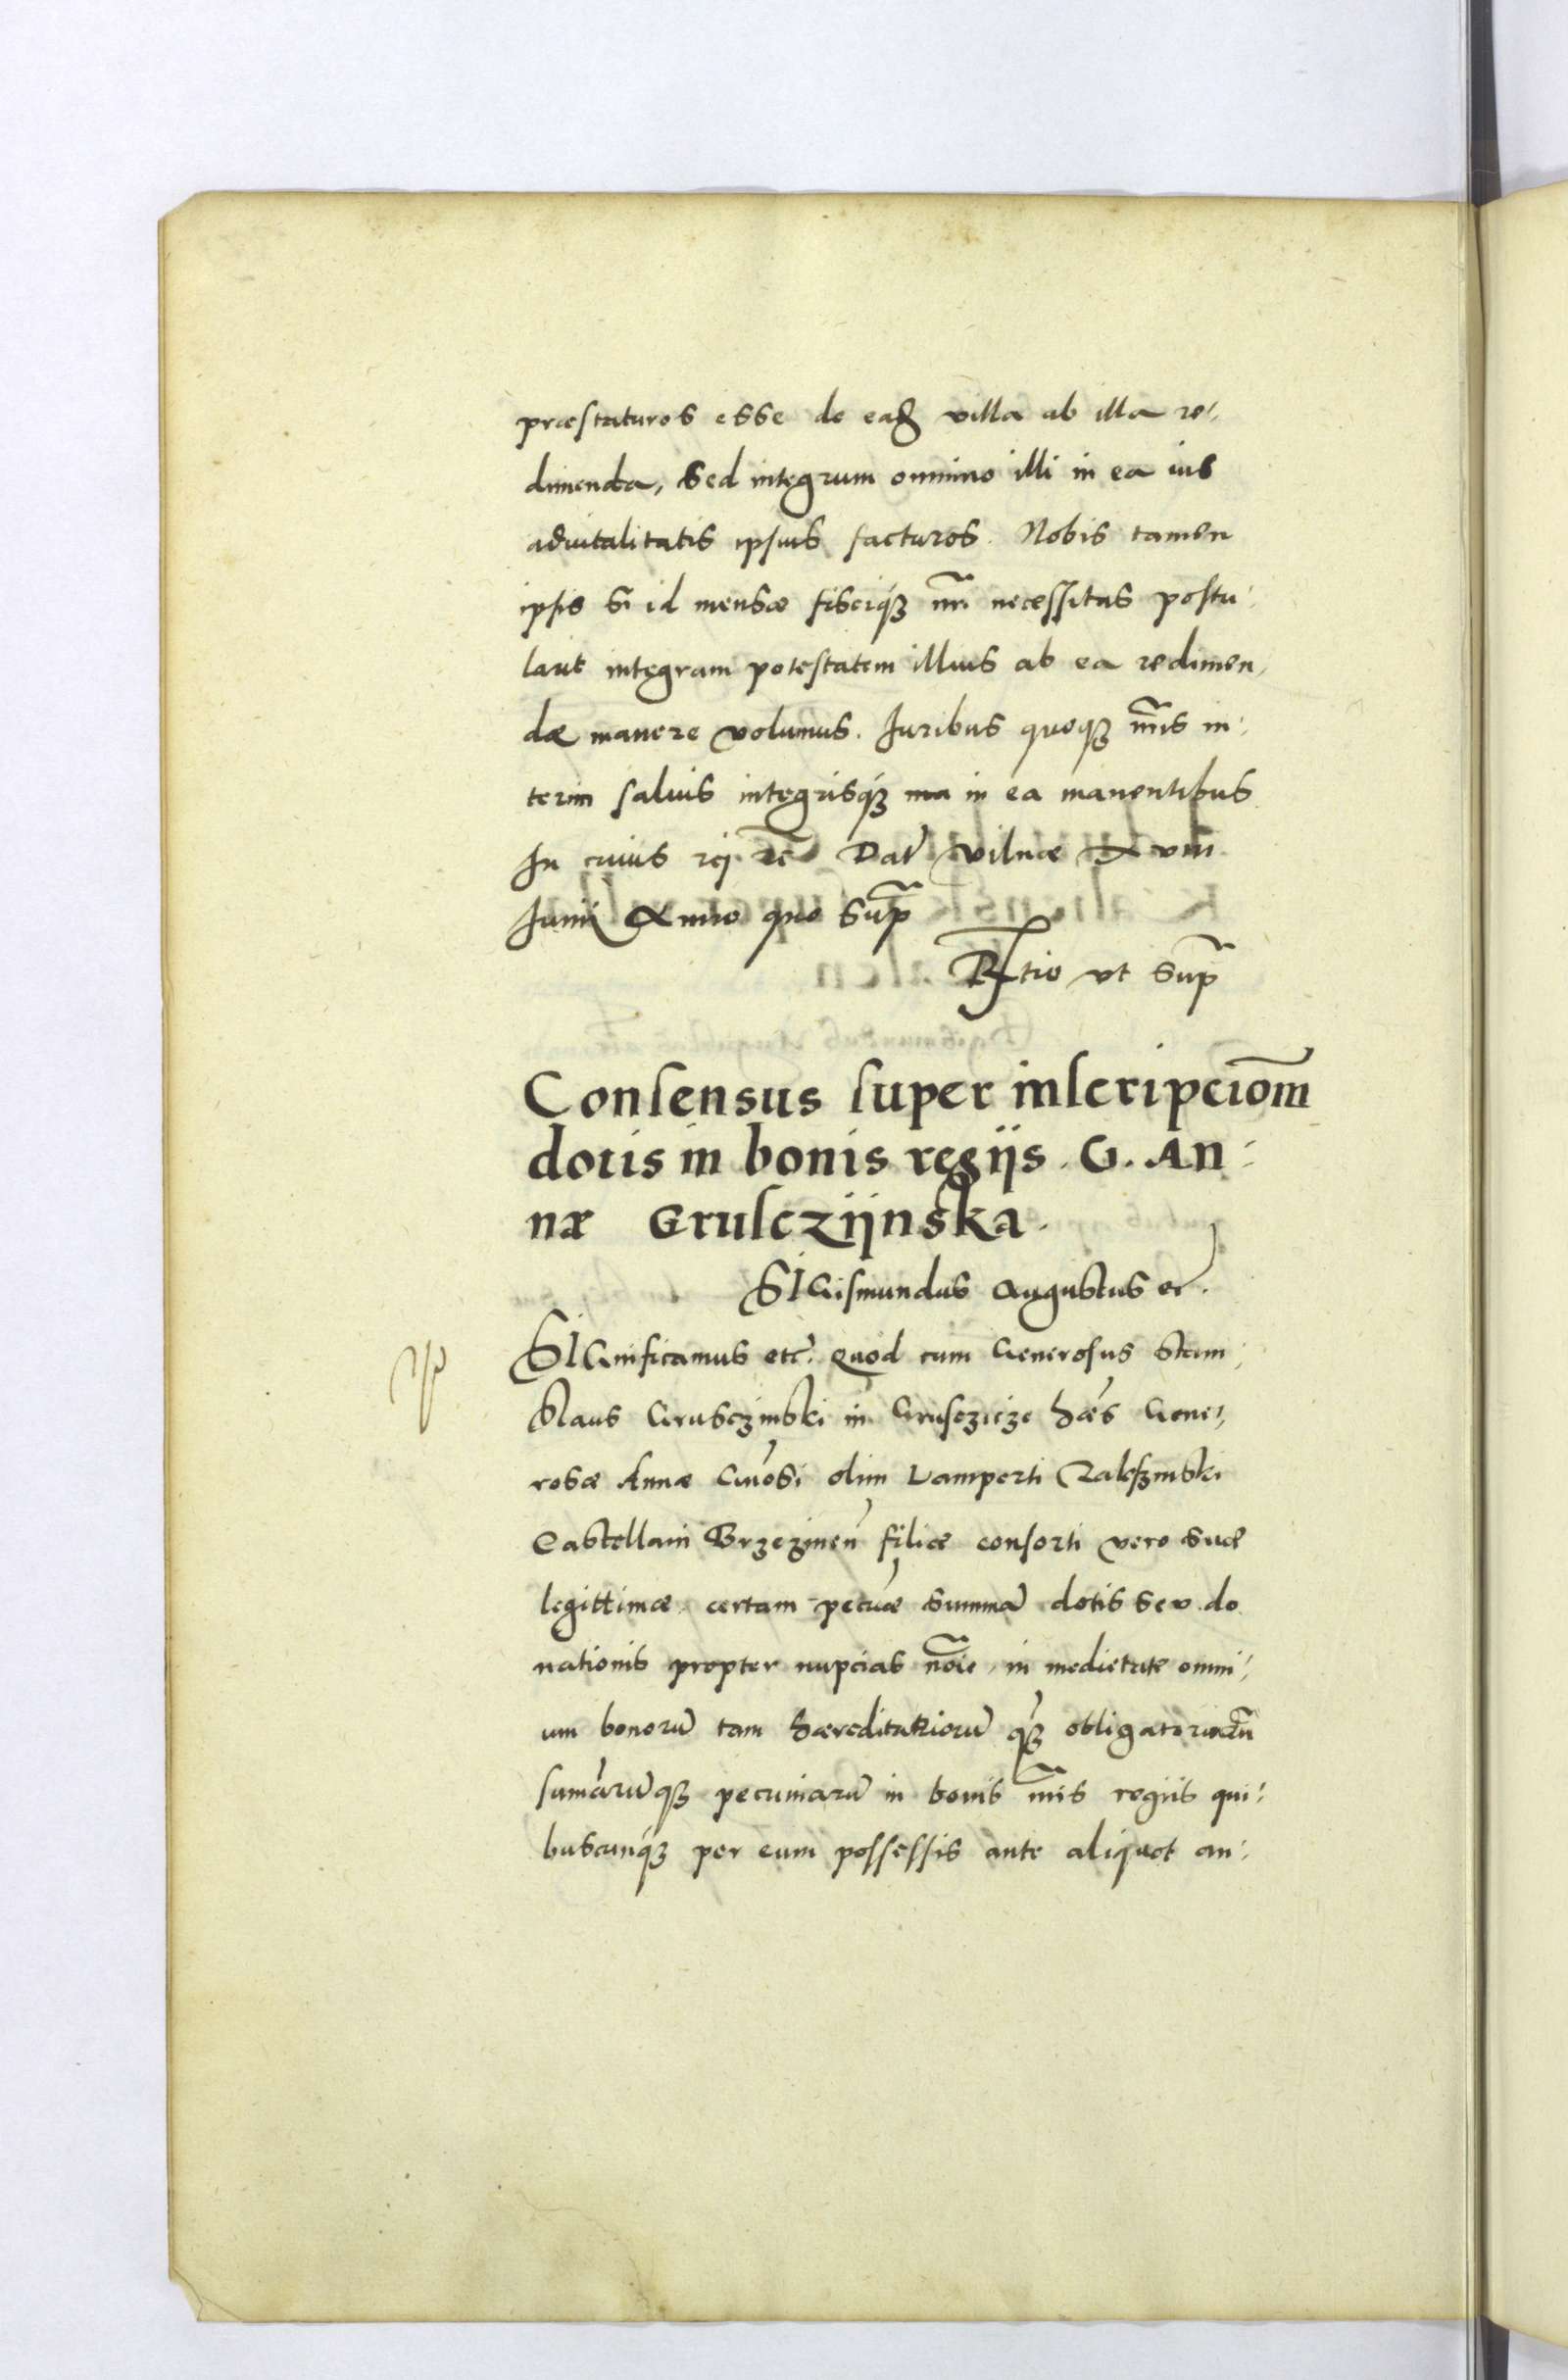 præstaturos esse de ead villa ab illa re-
dimenda, sed integrum omnino illi in ea ius
advitalitatis ipsius facturos. Nobis tamen
ipsis si id mensæ fisciq3 nr̃i necessitas postu-
larit integram potestatem illius ab ea redimen-
dæ manere volumus. Iuribus quoq3 nr̃is in-
terim salvis integrisq3 ma in ea manentibus
In cuius rej etc̃ Dat Vilnæ xviii
Iunij Anno quo Supˉ
Rˉtio vt supˉ
Consensus super inscripcioˉm
dotis in bonis regijs. G. An-
næ Grusczijnska.
SIGismundus Augustus etc.
SIGnificamus etc. Quod cum Generosus Stani-
slaus Grusczinski in Grusczicze hæs Gene-
rosæ Annæ Gnosi olim Lamperti Zaleszinski
Castellani Brzezinen filiæ consorti vero suæ
legittimæ certam pecuˉæ summaˉ dotis seu do
nationis propter nupcias noˉie, in medietate omni-
um bonoruˉ tam hæreditarioruˉ q3 obligatorioruˉ
sumaruˉq3 pecuniaruˉ in bonis nr̃is regiis qui-
buscunq3 per eum possessis ante aliquot an-